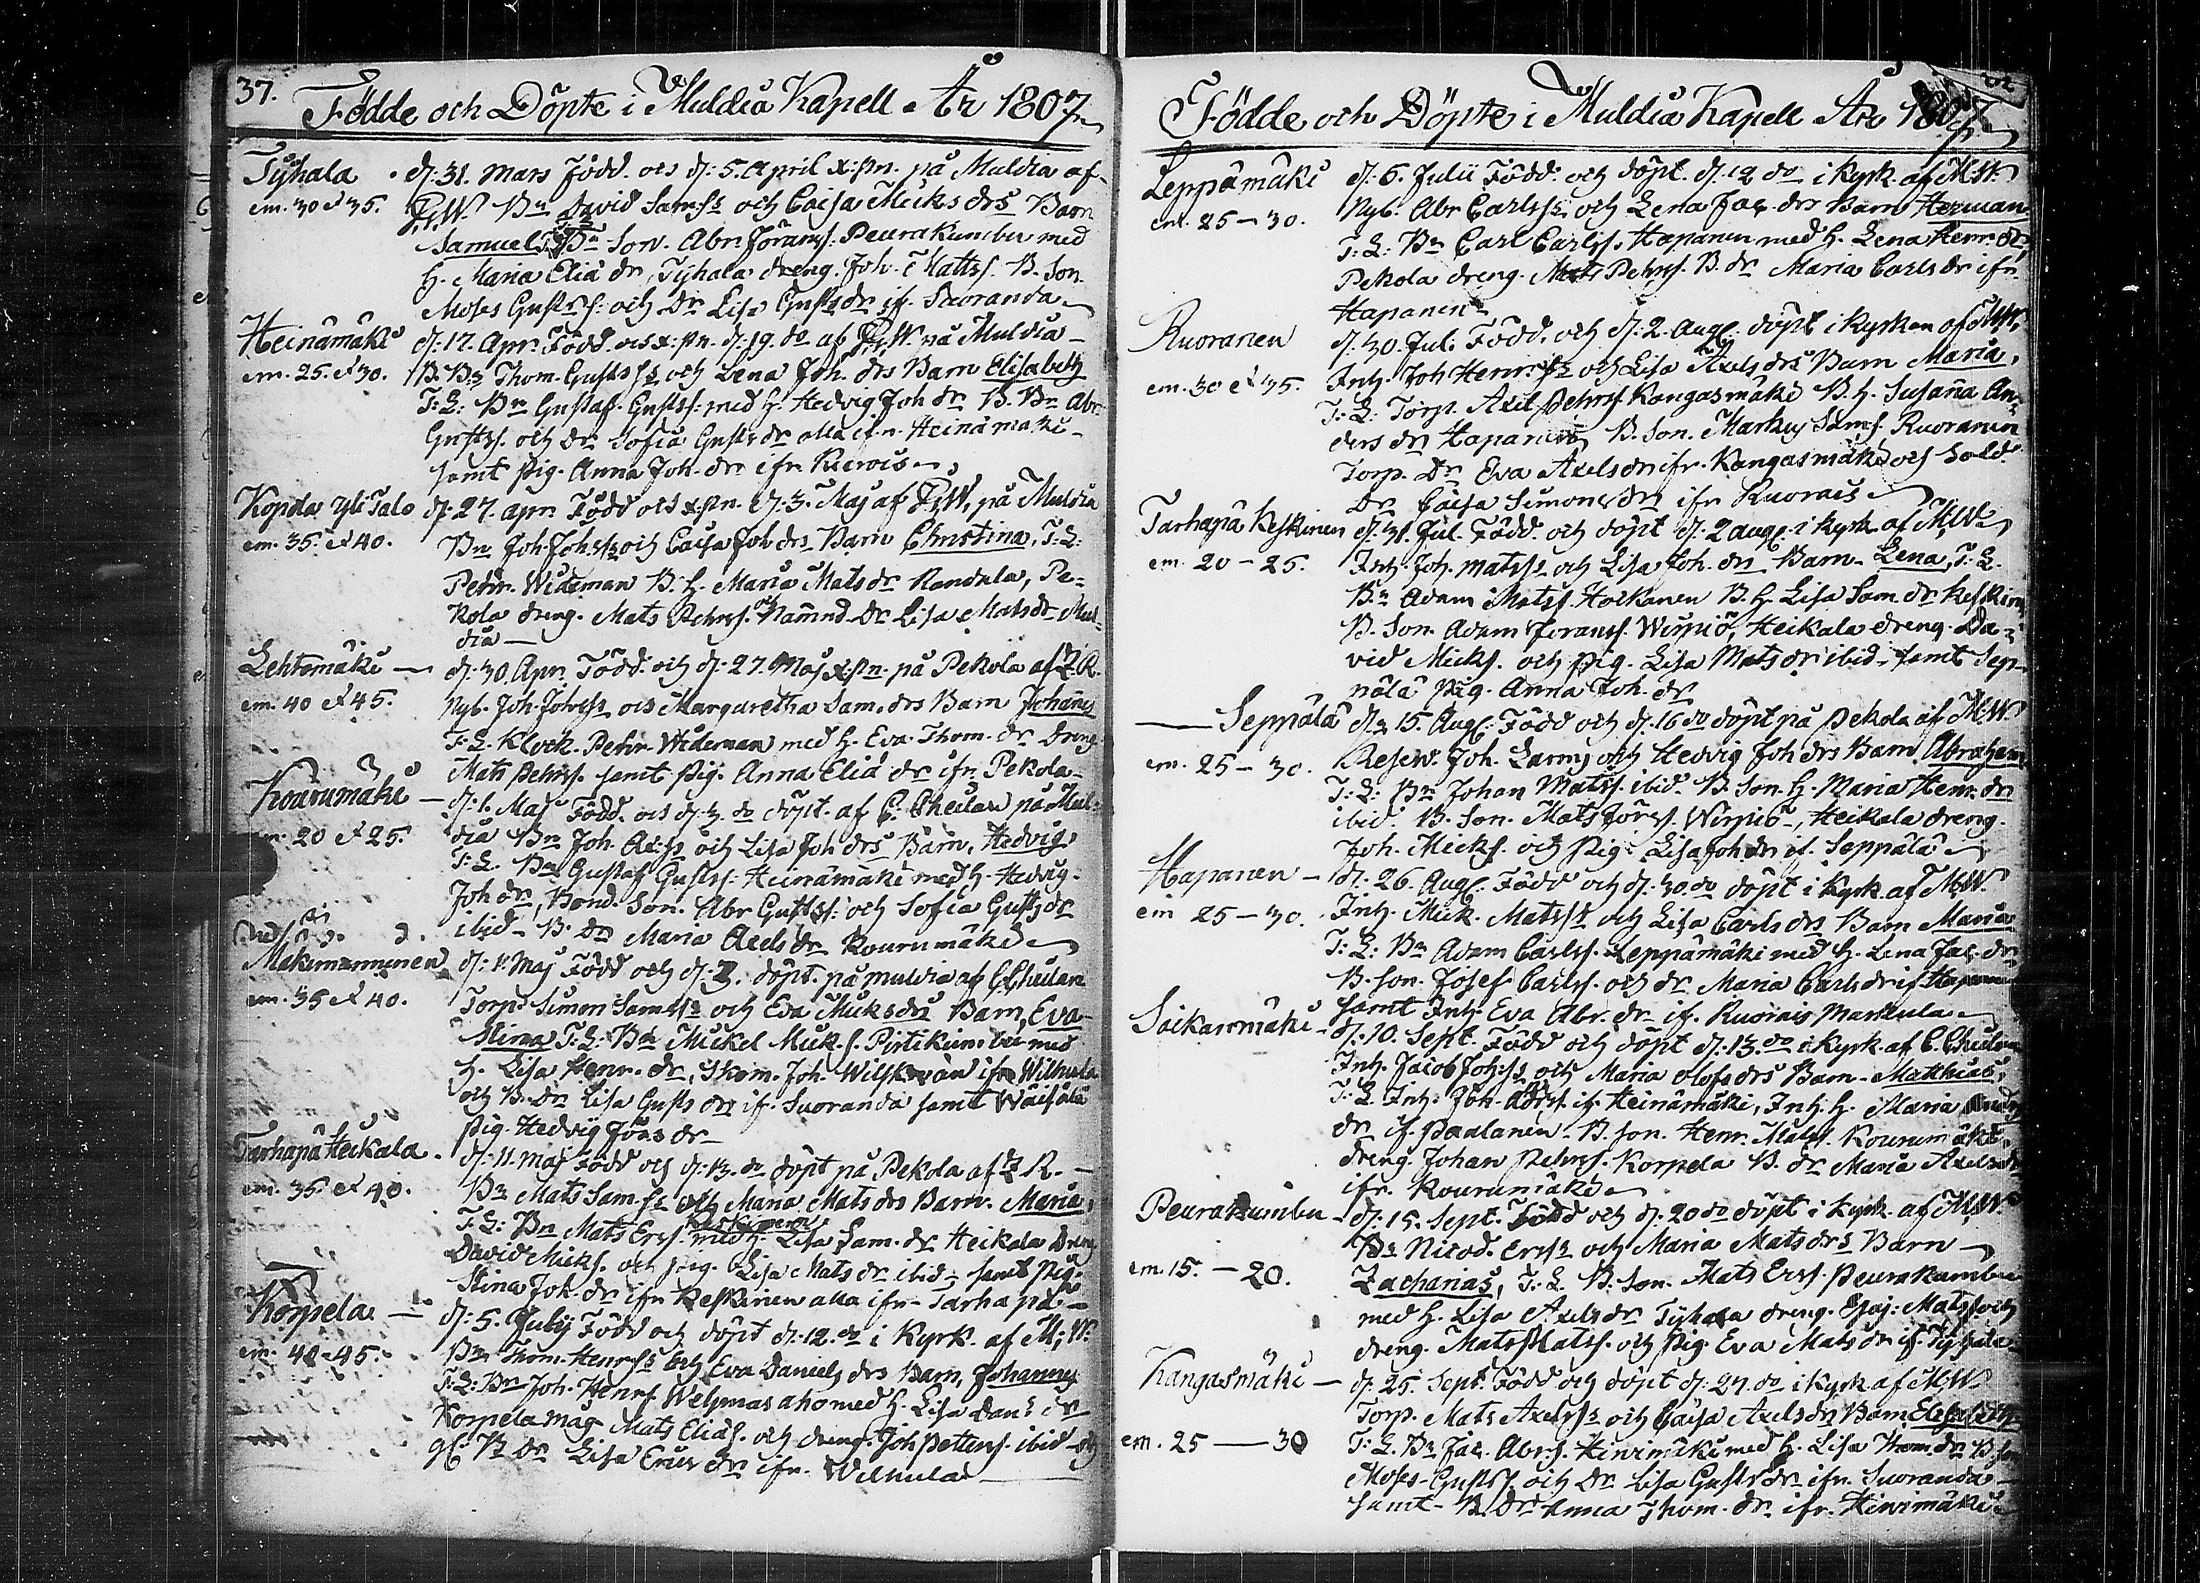 37.
Födde och Döpte i Muldia Kapell År 1807
Tyhala
em. 30 et 35.
d: 31. Mars Född. och d: 5. April x:pn. på Muldia af
Bn David Sam:ss och Caisa Micks drs Barn
Samuel, Bn Son. Abr. Jöranss. Peurakumbu med
h. Maria Elia dr, Tyhala dreng. Joh. Matss. B. Son
Moses Gustss: och Dr Lisa Gusts dr if. Suoranda
Heinämäki
em. 25. et 30.
d: 17. Apr. Född. och x:pn. d: 19. do af på Muldia
B. Bn Thom. Gustss och Lena Joh. drs Barn Elisabeth
T: L: Bn Gustaf. Gustss: med h. Hedvig Joh dr B. Bn Abr.
Gustss. och dr Sofia Gusts dr alla ifn. Heinämäki
samt pig. Anna Joh. dr ifn
Kopda Yli Talo
em. 35. et 40.
d: 27. Apr. Född och x:pn. d: 3. Maj af på Muldia
Bn Joh. Joh:ss och Caisa Joh drs Barn Christina, T: L:
Pehr. Wideman B. h. Maria Mats dr Randala, Pe=
kola dreng. Mats Pehrss. Nämnd. Dr Lisa Mats dr Mul=
dia
Lehtomäki
em. 40 et 45.
d: 30. Apr. Född. och d: 27. Maj x:pn. på Pekola af Z. R.
Nyb. Joh. Joh:ss och Margaretha Sam. drs Barn Johannes
T: L. Klock. Pehr. Wideman med h. Eva. Thom. dr dreng
Mats Pehrss. samt pig. Anna Elia dr ifn Pekola
Kourumäki
em. 20 et 25.
d: 1. Maj Född. och d: 3. do döpt. af C. Cheilan på Mul=
dia Bn Joh. Ax:ss och Lisa Joh drs Barn, Hedvig
T: L. Bn Gustaf Gustss: Heinämäki med h. Hedvig.
Joh dr, Bond. Son. Abr Gustss: och Sofia Gusts dr
ibid. B. dr Maria Axels dr Kourumäki
Mäkimanninen
em. 35 et 40.
d: 1. Maj Född och d: 3. döpt. på Muldia af C. Cheilan
Torp. Simon Sam:ss och Eva Micks drs Barn, Eva
Stina T: L: Bn Mickel Mick. s. Pirtikumbu med
h. Lisa Henr. dr, Skom. Joh. ifn Wilhula
och B. Dr Lisa Gusts dr if. Suoranda samt Wäisälä
pig. Hedvig Jörs dr
Tarhapä Heikala
em. 35 et 40.
d: 11. Maj Född och d: 13. do döpt på Pekola af Z R.
Bn Mats Sam:ss och Maria Mats drs Barn. Maria,
T. L: Bn Mats Erss. Keskinen med h. Lisa Sam. dr Heikala dreng
David Micks. och pig. Lisa Mats dr ibid samt pig.
Stina Joh. dr ifn Keskinen alla ifn Tarhapä
Korpela
em. 40-45.
d: 5. July Född och döpt d: 12. do i Kyrk. af M: W:
Bn Thom. Henr:ss och Eva Daniels drs Barn, Johannes
T: L: Bn Joh. Henrs. med h. Lisa Dan:s dr
Korpela måg Mats Elias. och dreng. Joh Petterss. ibid och
gl. Bn Dr Lisa Erics dr ifn. Wilhula
Födde och Döpte i Muldia Kapell År 1807
Leppämäki
em. 25-30.
d: 6. Julii Född. och döpt. d: 12 do i Kyrk. af M:W:
Nyb: Abr Carlss. och Lena Jac. drs Barn Herman
T: L: Bn Carl Carlss. Hapanen med h. Lena Henr. dr
Pekola dreng. Mats Pehrss. B. dr Maria Carls dr ifn
Hapanen
Ruoranen
em. 30 et 35.
d: 30. Jul. Född. och d: 2. Aug. döpt i Kyrkan af M:W:
Inh. Joh Henr:ss och Lisa Axels drs Barn Maria,
T: L: Torp. Axel Pehrss. Kangasmäki B. h. Susana An=
ders dr Hapanen, B. Son. Markus Sam:s. Ruoranen
Torp. Dr Eva Axels dr ifn. Kangasmäki och Sold.
Dr Caisa Simons dr ifn
Tarhapä Keskinen
em. 20-25.
d: 31. Jul. Född. och döpt d: 2 aug: i Kyrk. af M:W:
Inh. Joh. Matss och Lisa Joh. drs Barn Lena, T: L.
Bn Adam Matss. Hockanen B. h. Lisa Sam. dr Keskinen
B. Son. Adam Joranss. Wirpiö, Heikala dreng. Da=
vid Micks. och pig. Lisa Mats dr ibid. samt Sep=
pälä pig. Anna Joh. dr
Seppälä
em. 25-30.
d: 15. Aug: Född och d: 16 do döpt på Pekola af M:W:
Reserv. Joh. Larms och Hedvig Joh drs Barn Abraham
T: L: Bn Johan Matss. ibid. B. Son. h. Maria Henr. dr
ibid. B. Son. Mats Jörss. Wirpiö, Heikala dreng.
Joh. Micks. och pig. Lisa Joh dr if. Seppälä
Hapanen
em 25-30.
d: 26. Aug: Född och d: 30. do döpt i Kyrk af M:W:
Inh. Mick. Matss och Lisa Carls drs Barn Maria
T: L: Bn Adam Carlss. Leppämäki med h. Lena Jac. dr
B. Son. Josef Carlss. och dr Maria Carls dr if Hapanen
samt Inh: Eva Abr. dr if.
Saikarmäki
d: 10. Sept. Född och döpt d: 13. do i Kyrk. af C. Cheilan
Inh. Jacob Joh:ss och Maria Olofs drs Barn Matthias,
T: L. Inh: Joh. if. Heinämäki, Inh. h. Maria
dr if. Paalanen B. Son. Henr. Matss. Kourumäki
dreng. Johan Pehrss. Korpela B. dr Maria Axels dr
ifn. Kourumäki
Peurakumbu
em. 15. - 20.
d: 15. Sept. Född och d: 20 do döpt i Kyrk. af M:W:
Bn Nicod. Erss och Maria Mats drs Barn
Zacharias, T: L. B. Son. Mats Erss. Peurakumbu
med h. Lisa Axels dr Tyhala dreng. Esaj: Matss. och
dreng. Mats Matss. och pig. Eva Mats dr if Tyhala
Kangasmäki
em. 25 - 30
d: 25. Sept. Född och döpt d: 27. do i Kyrk af M:W:
Torp. Mats Axelss och Caisa Axels drs Barn Elisabeth
T: L. Bn Jac. Abrs. Hirvimäki med h. Lisa Thom dr B. Son
Moses Gustss. och Dr Lisa Gusts dr ifn. Suoranda
samt B. Dr Anna Thom. dr ifn. Hirvimäki